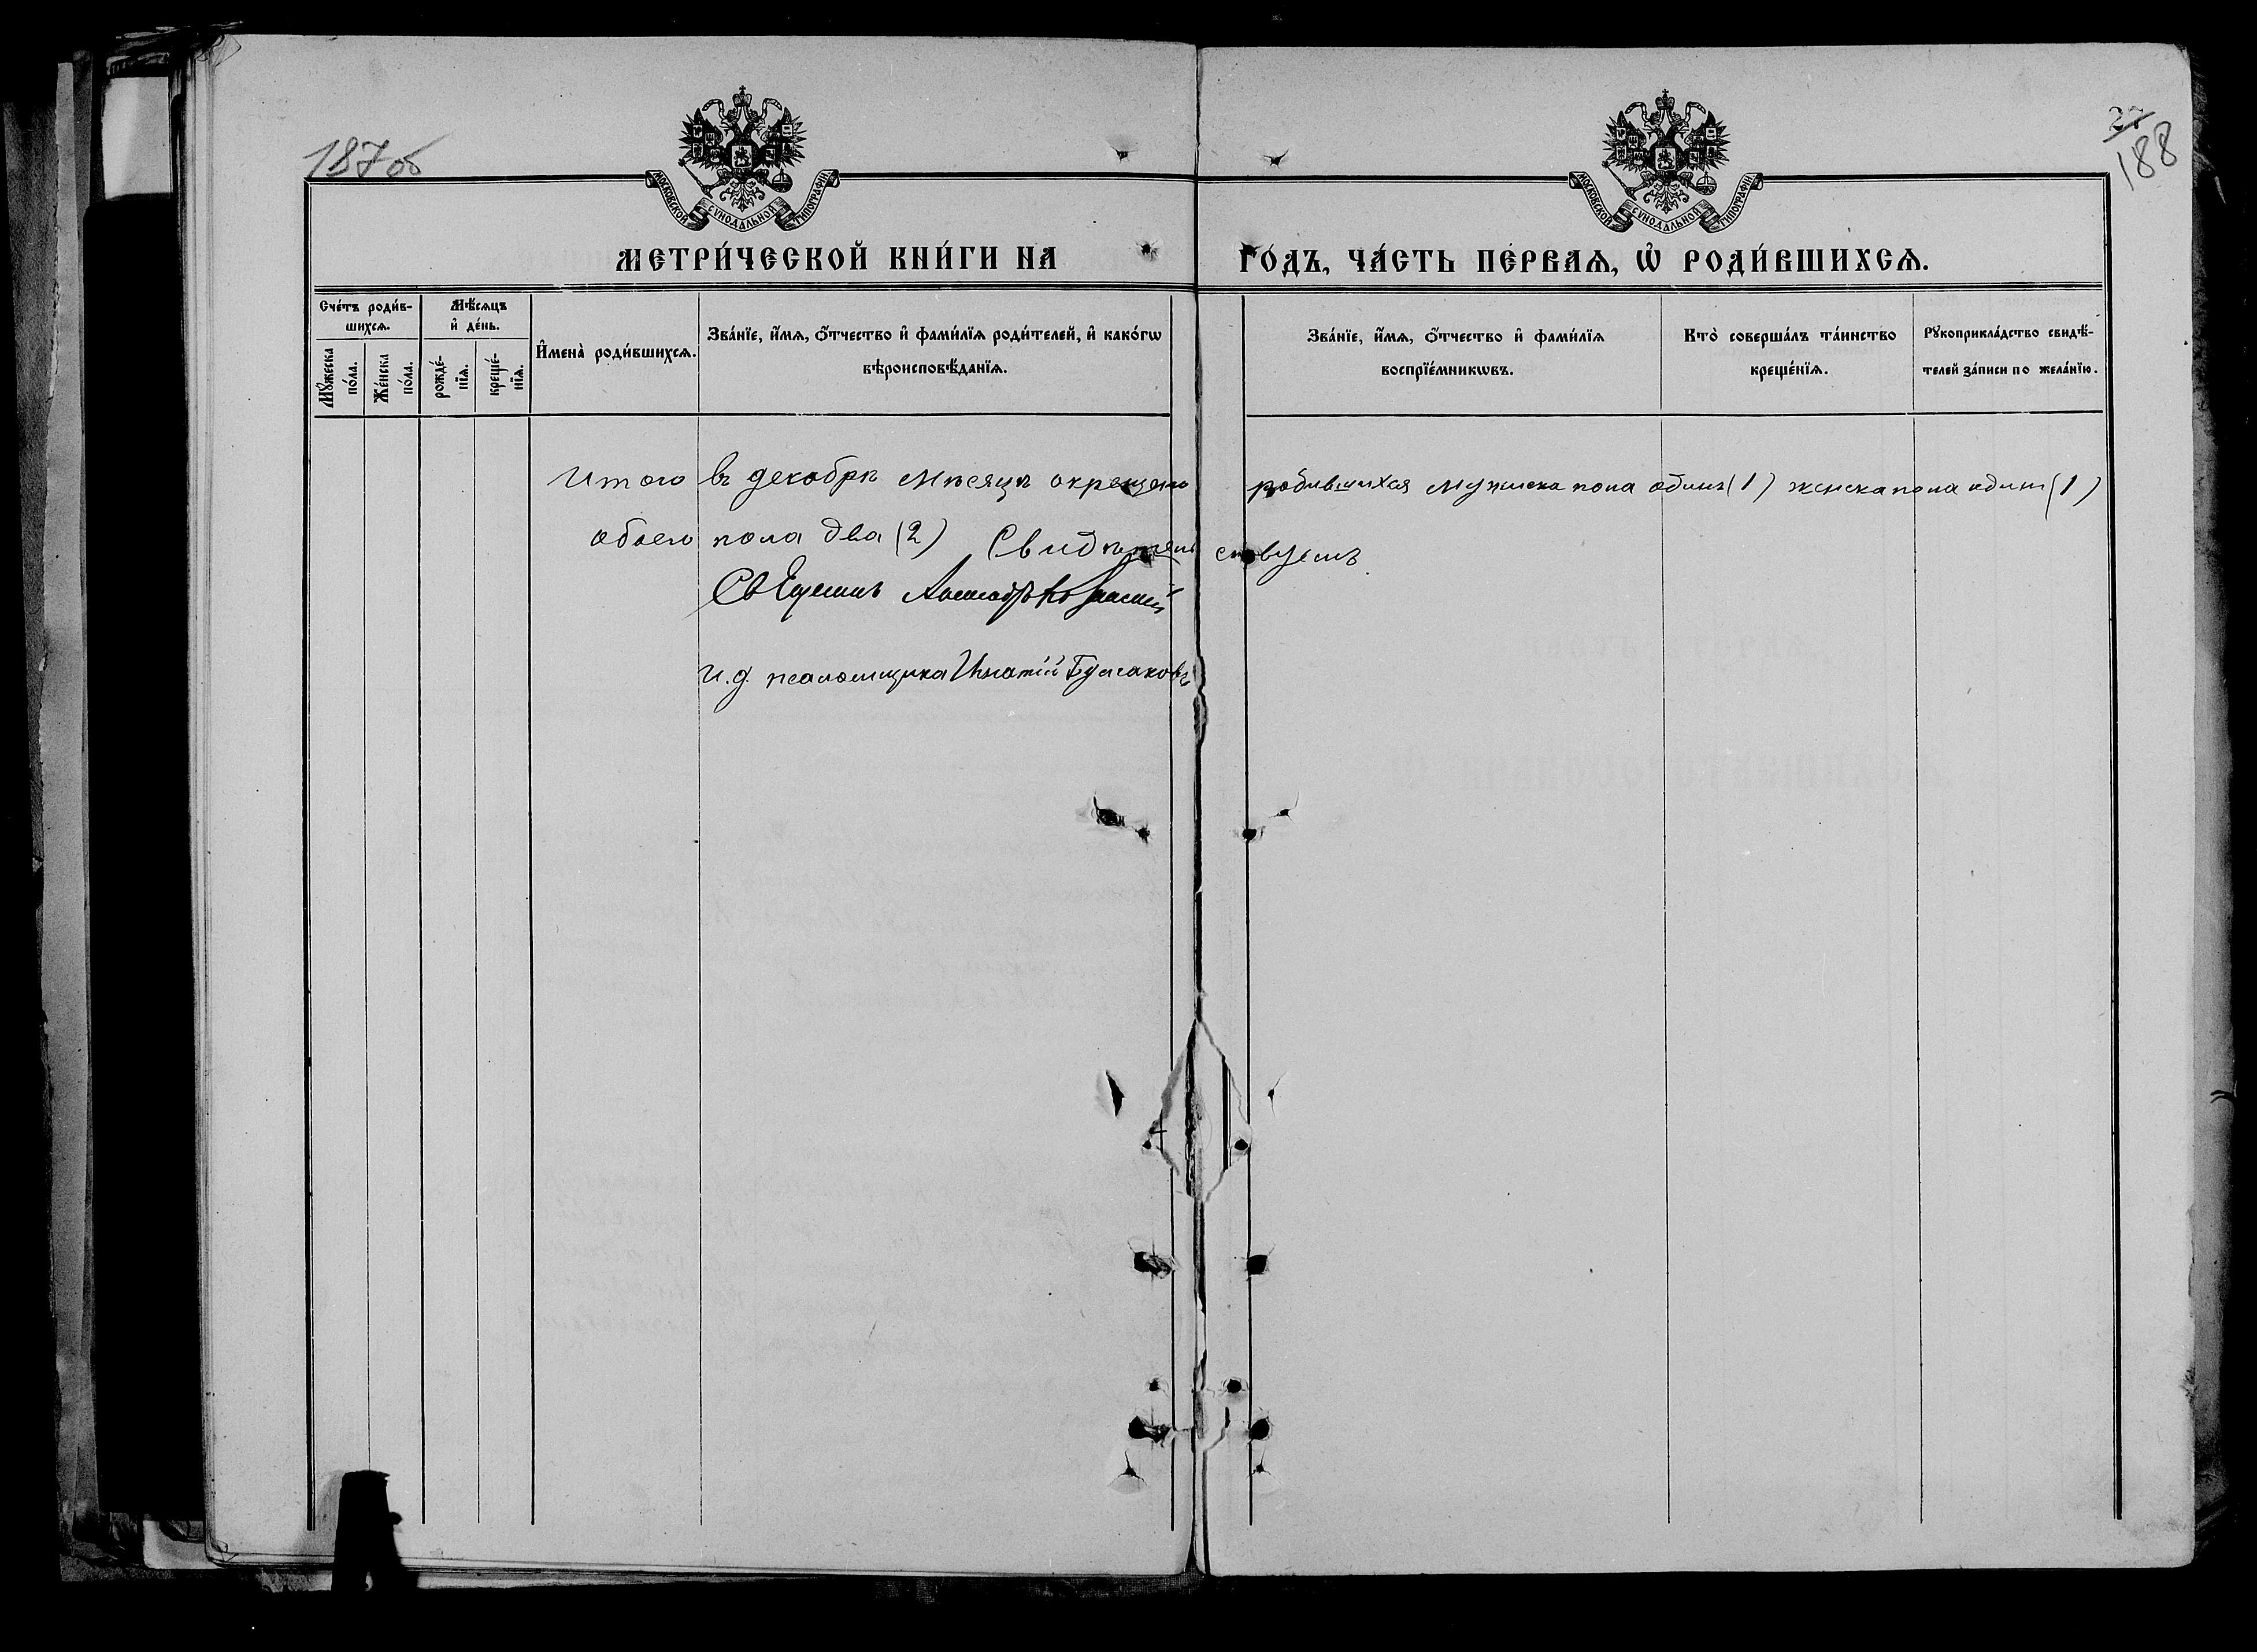 187об
27
188
МОСКОВСКОЙ СѴНОДАЛЬНОЙ ТИПОГРАФІИ
МОСКОВСКОЙ СѴНОДАЛЬНОЙ ТИПОГРАФІИ
МЕТРИ́ЧЕСКОЙ КНИ́ГИ НА ГО́ДЪ, ЧА́СТЬ ПЕ́РВАЯ, Ѡ҆ РОДИ́ВШИХСЯ.
Сче́тъ роди́в-
шихся.
Мѣ́сяцъ
и҆ де́нь.
Мꙋ́жеска
по́ла.
Же́нска
по́ла.
рожде́-
нїя.
креще́-
нїя.
И҆мена̀ роди́вшихся.
Зва́нїе, и҆́мя, ѻ҆́тчество и҆ фами́лїя роди́телей, и҆ како́гѡ
вѣроисповѣ́данїя.
Зва́нїе, и҆́мя, ѻ҆́тчество и҆ фами́лїя
воспрїе́мникѡвъ.
Кто̀ соверша́лъ та́инство
креще́нїя.
Рꙋкоприкла́дство свидѣ́-
телей за́писи по жела́нїю.
Итого въ декабрѣ мѣсяцѣ окрещено родившихся мужеска пола одинъ (1) женска пола один (1)
обоего пола два (2) Свидѣтельствуемъ
Священникъ
и. д. псаломщика Игнатій Бумаковъ